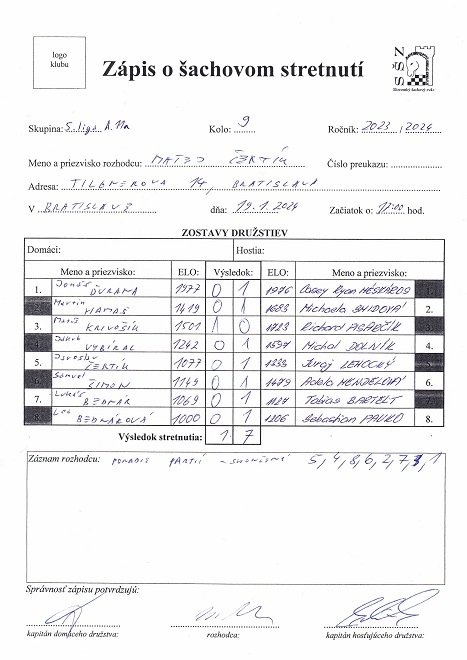 logo
klubu
Zápis o šachovom stretnutí
SŠZ
Slovenský šachový zväz
Skupina: 5. liga A. 11a Kolo: 9 Ročník: 2023 / 2024
Meno a priezvisko rozhodcu: MATEJ ČERTÍK Číslo preukazu:
Adresa: TILGNEROVA 14, BRATISLAVA
V BRATISLAVE dňa: 19.1.2024 Začiatok o: 17:00 hod.
ZOSTAVY DRUŽSTIEV
Domáci: Hostia:
Meno a priezvisko: ELO: Výsledok: ELO: Meno a priezvisko:
1. Jonáš ĎURANA 1977 0 1 1976 Casey Ryan
Martin HAMAŠ 1419 0 1 1683 Michaela 2.
3. Matúš KRIVOŠÍK 1501 1 0 Richard AGARČÍK
Jakub VYBÍRAL 1242 0 1 1597 Michal DOLNÍK 4.
5. Jaroslav ČERTÍK 1077 0 1 1333 Juraj LEHOCKÝ
Samuel ŠIMON 1149 0 1 1479 Adela MENDELOVÁ 6.
7. Lukáš BEDNÁR 1069 0 1 1127 Tobias BARTELT
Lea BEDNÁROVÁ 1000 0 1 1206 Sebastian PAULKO 8.
Výsledok stretnutia: 1 7
Záznam rozhodcu: PORADIE PARTIÍ - 5, 4, 8, 6, 2, 7, 3, 1
Správnosť zápisu potvrdzujú:
kapitán domáceho družstva: rozhodca: kapitán hosťujúceho družstva: